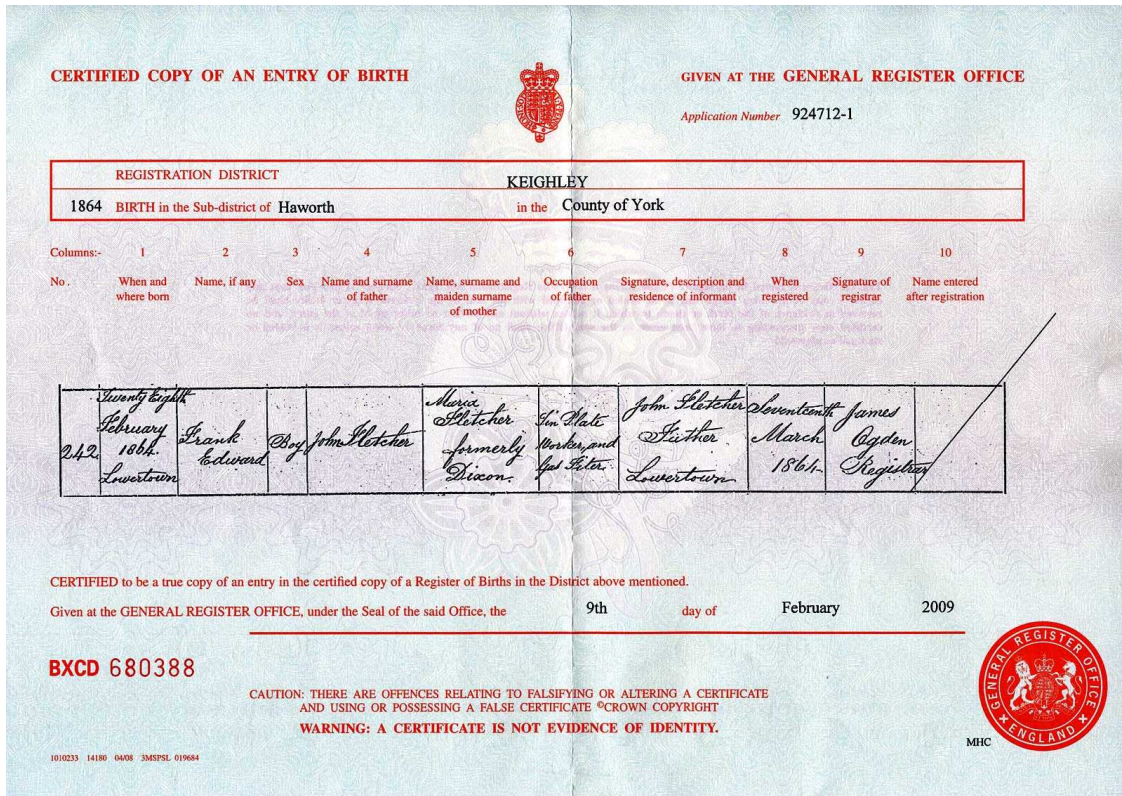 CERTIFIED COPY OF AN ENTRY OF BIRTH
GIVEN AT THE GENERAL REGISTER OFFICE
Application Number 924712-1
REGISTRATION DISTRICT KEIGHLEY
1864 BIRTH in the Sub-district of Haworth in the County of York
Columns:- 1 2 3 4 5 6 7 8 9 10
No. When and where born Name, if any Sex Name and surname of father Name, surname and maiden surname of mother Occupation of father Signature, description and residence of informant When registered Signature of registrar Name entered after registration
242
Twenty Eighth
February
1864
Lowertown
Frank
Edward
Boy
John Fletcher
Maria
Fletcher
formerly
Dixon
Tin Plate
Worker, and
Gas Fiter
John Fletcher
Father
Lowertown
Seventeenth
March
1864
James
Ogden
Registrar
CERTIFIED to be a true copy of an entry in the certified copy of a Register of Births in the District above mentioned.
Given at the GENERAL REGISTER OFFICE, under the Seal of the said Office, the 9th day of February 2009
BXCD 680388
CAUTION: THERE ARE OFFENCES RELATING TO FALSIFYING OR ALTERING A CERTIFICATE
AND USING OR POSSESSING A FALSE CERTIFICATE ©CROWN COPYRIGHT
WARNING: A CERTIFICATE IS NOT EVIDENCE OF IDENTITY.
GENERAL REGISTER OFFICE
ENGLAND
MHC
1010233 14180 04/08 3MSPSL 019684